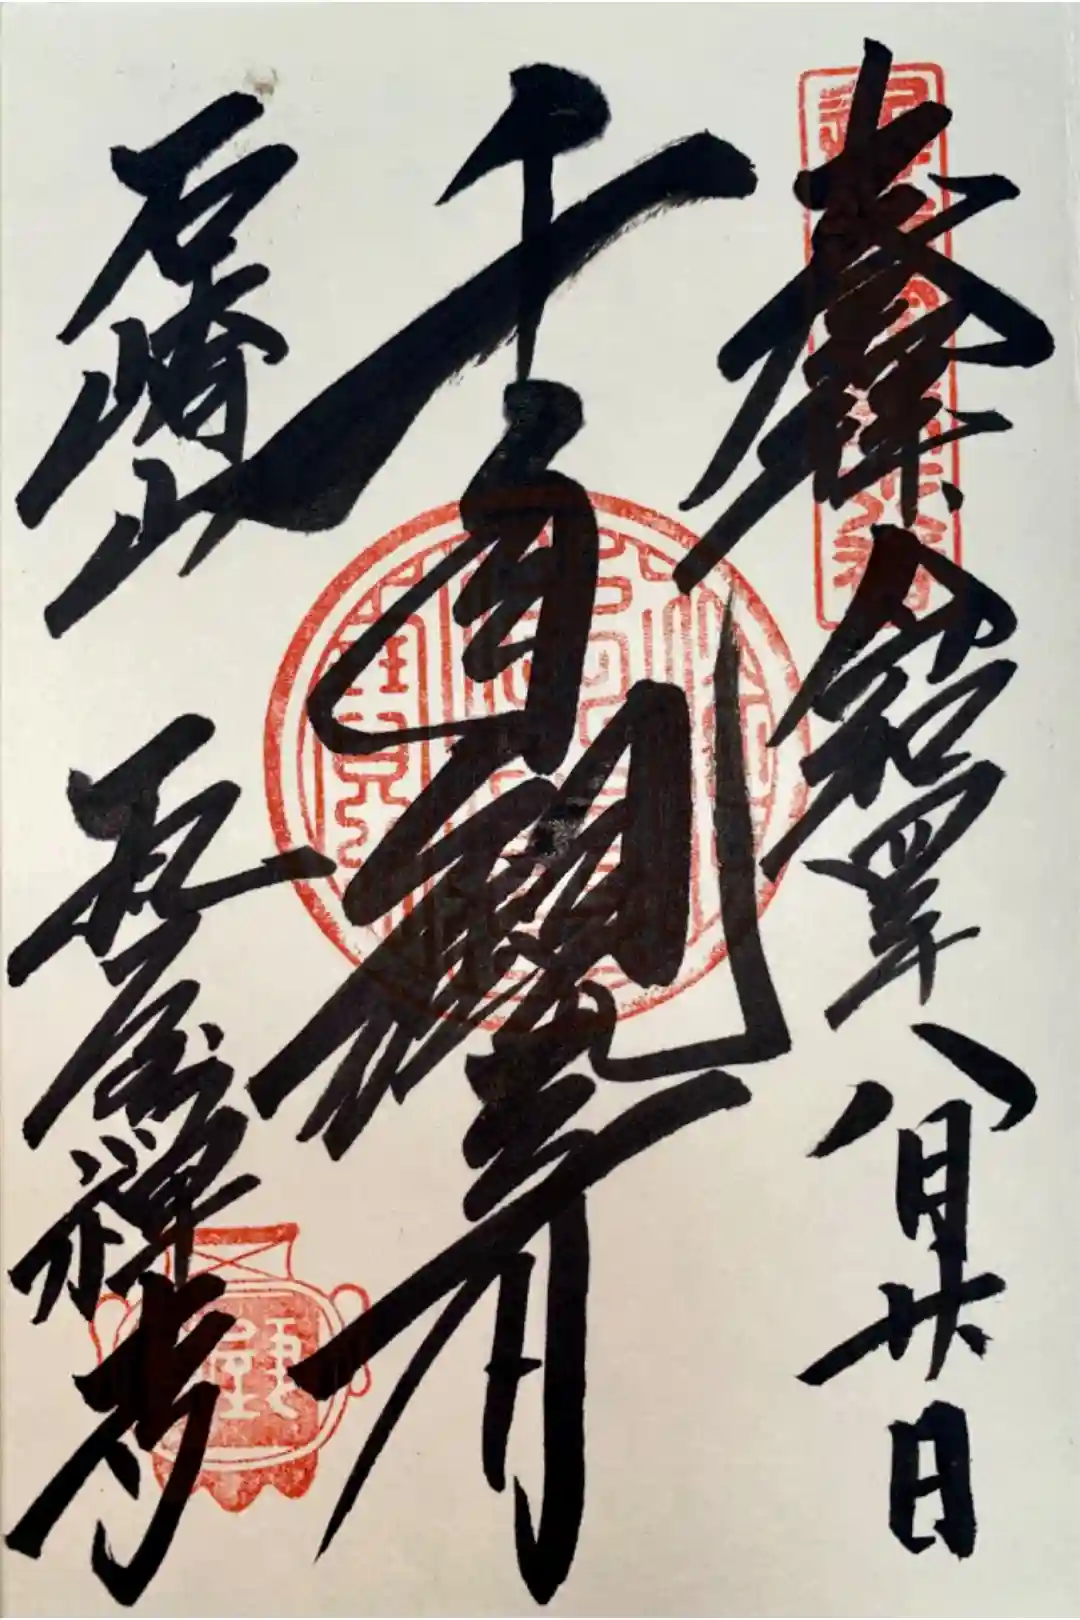 奉拝 令和四年八月廿日
千手観音
石崎山
瓦屋禅寺